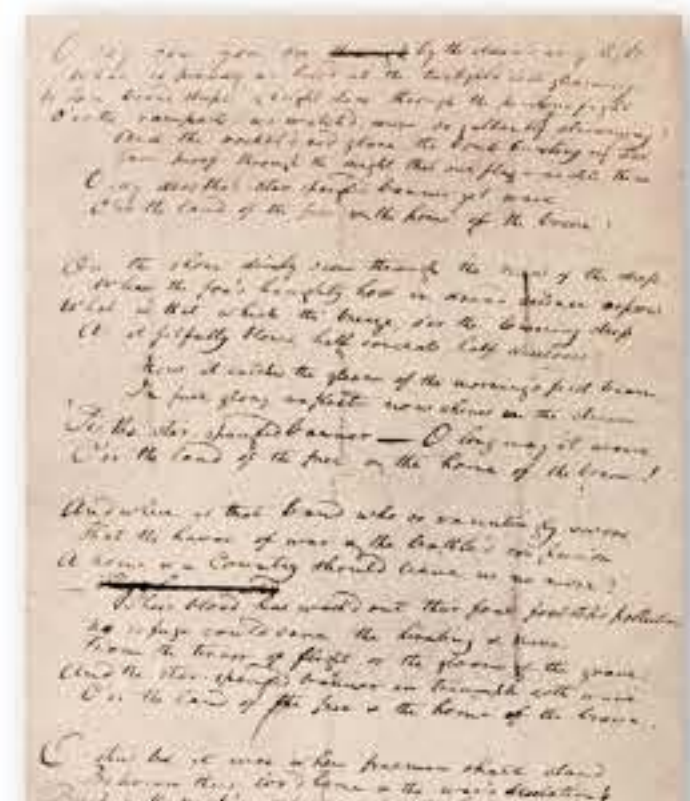 O say can you see ~~through~~ by the dawn's early light
What so proudly we hail'd at the twilight's last gleaming
Whose broad stripes & bright stars through the perilous fight
O'er the ramparts we watch'd were so gallantly streaming?
And the rocket's red glare, the bomb bursting in air
Gave proof through the night that our flag was still there
O say does that star spangled banner yet wave
O'er the land of the free & the home of the brave?
On the shore dimly seen through the mists of the deep
Where the foe's haughty host in dread silence reposes
What is that which the breeze, o'er the towering steep
As it fitfully blows, half conceals half discloses
Now it catches the gleam of the morning's first beam
In full glory reflected now shines in the stream
'Tis the star-spangled banner — O long may it wave
O'er the land of the free & the home of the brave!
And where is that band who so vauntingly swore
That the havoc of war & the battle's confusion
A home & a Country should leave us no more?
Their blood has wash'd out their foul footstep's pollution
No refuge could save the hireling & slave
From the terror of flight or the gloom of the grave
And the star-spangled banner in triumph doth wave
O'er the land of the free & the home of the brave.
O thus be it ever when freemen shall stand
Between their lov'd home & the war's desolation!